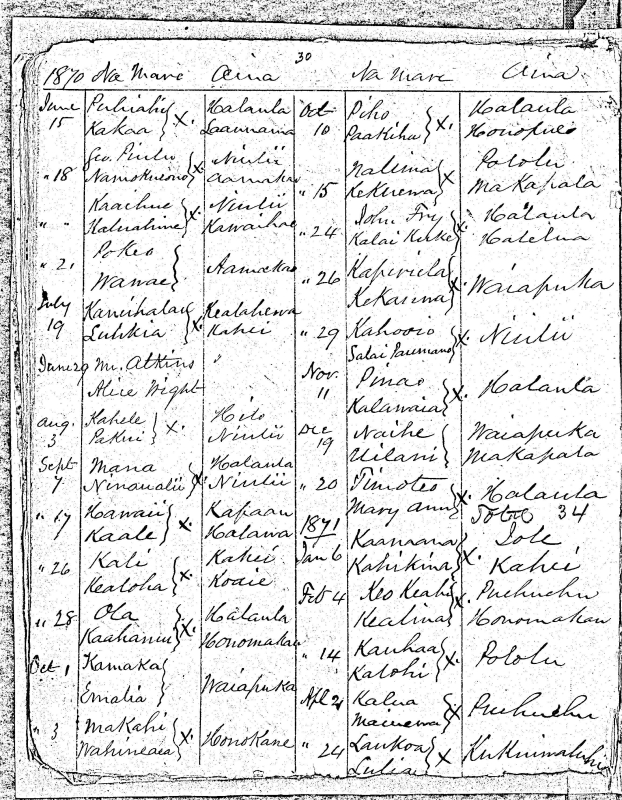 30
1870 Na Mare Aina
June 15 Puhiahi Halaula
Kakaa X. Laaumama
" 18 Geo. Niulii
Namokueono X. Aamakao
" " Kaachue Niulii
Kaluahine X. Kawaihae
" 21 Pokeo
Wawae Aamakao
July 19 Kealakewa
Luhkia X. Kahei
June 29 Mr. Atkins "
Alice Wight
Aug. 3 Kahele Hilo
Pakui X. Niulii
Sept 7 Mana Halaula
Ninaualii X. Niulii
" 17 Hawaii Kapaau
Kaale X. Halawa
" 26 Kali Kahei
Kealoha X. Koaie
" 28 Ola Halaula
Kaahanui X. Honomakau
Oct 1 Kamaka
Emalia Waiapuka
" 3 Makahi
Wahineaea X. Honokane
Na Mare Aina
Oct 10 Piho Halaula
Paakiha X. Honopueo
" 15 Nalima Pololu
Kekuewa X Makapala
" 24 John Fry Halaula
Kalai Kuke X. Halelua
" 26
Kekauna X. Waiapuka
" 29 Kahooio
Salai X. Niulii
Nov. 11 Pinao
Kalawaia X. Halaula
Dec 19 Naihe Waiapuka
Uilani Makapala
" 20 Timoteo
Mary Ann X. Halaula
Total 34
1871
Jan 6 Kaanaana Iole
Kahikina X. Kahei
Feb 4 Keo Keahi Puehuehu
Kealina X. Honomakau
" 14 Kauhaa
Kalohi X. Pololu
Apl 21 Kalua
X Puehuehu
" 24 Laukoa
Lulia X Kukuimaluhia